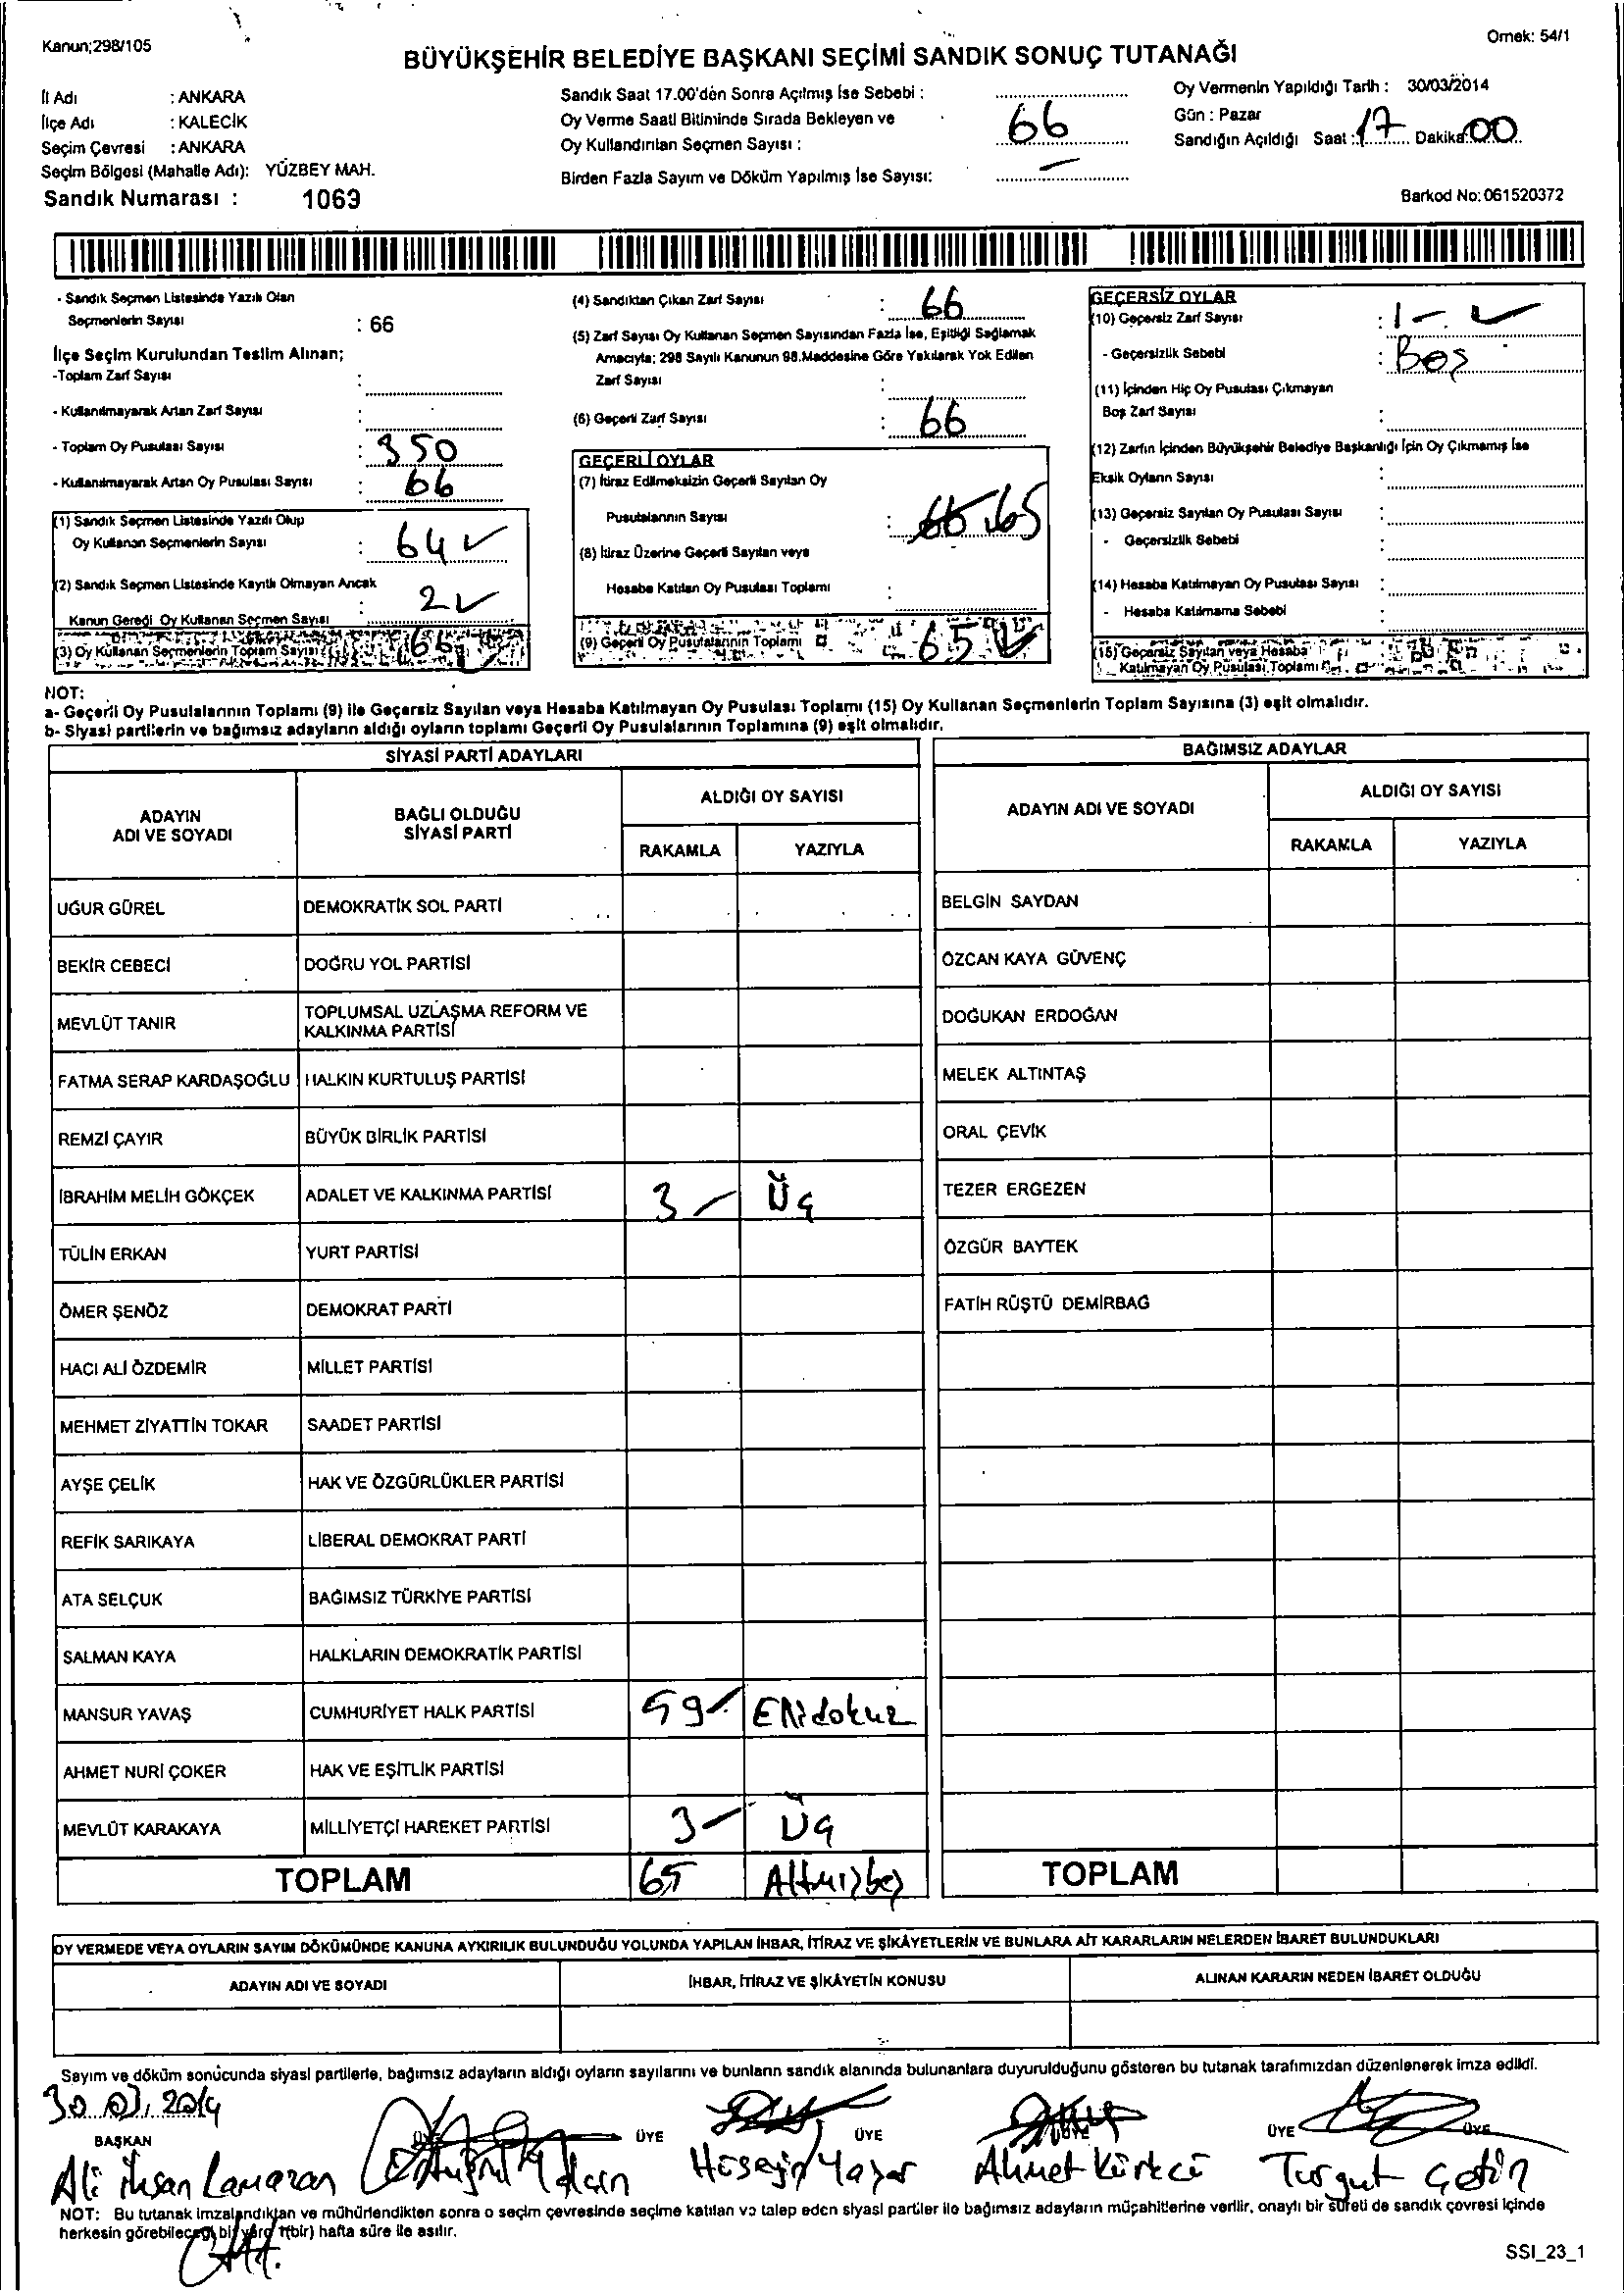 Kanun;298/105
Örnek: 54/1
BÜYÜKŞEHİR BELEDİYE BAŞKANI SEÇİMİ SANDIK SONUÇ TUTANAĞI
İl Adı : ANKARA
İlçe Adı : KALECİK
Seçim Çevresi : ANKARA
Seçim Bölgesi (Mahalle Adı): YÜZBEY MAH.
Sandık Numarası : 1063
Sandık Saat 17.00'dên Sonra Açılmış İse Sebebi :
Oy Verme Saati Bitiminde Sırada Bekleyen ve
Oy Kullandırılan Seçmen Sayısı : 66
Birden Fazla Sayım ve Döküm Yapılmış İse Sayısı: —
Oy Vermenin Yapıldığı Tarih : 30/03/2014
Gün : Pazar
Sandığın Açıldığı Saat : 17 Dakika 00
Barkod No: 061520372
- Sandık Seçmen Listesinde Yazılı Olan
Seçmenlerin Sayısı : 66
İlçe Seçim Kurulundan Teslim Alınan;
-Toplam Zarf Sayısı :
- Kullanılmayarak Artan Zarf Sayısı :
- Toplam Oy Pusulası Sayısı : 350
- Kullanılmayarak Artan Oy Pusulası Sayısı : 66
(1) Sandık Seçmen Listesinde Yazılı Olup
Oy Kullanan Seçmenlerin Sayısı : 64 ✓
(2) Sandık Seçmen Listesinde Kayıtlı Olmayan Ancak
Kanun Gereği Oy Kullanan Seçmen Sayısı : 2 ✓
(3) Oy Kullanan Seçmenlerin Toplam Sayısı : 66
(4) Sandıktan Çıkan Zarf Sayısı : 66
(5) Zarf Sayısı Oy Kullanan Seçmen Sayısından Fazla İse, Eşitliği Sağlamak
Amacıyla; 298 Sayılı Kanunun 98.Maddesine Göre Yakılarak Yok Edilen
Zarf Sayısı :
(6) Geçerli Zarf Sayısı : 66
GEÇERLİ OYLAR
(7) İtiraz Edilmeksizin Geçerli Sayılan Oy
Pusulalarının Sayısı : 66 65
(8) İtiraz Üzerine Geçerli Sayılan veya
Hesaba Katılan Oy Pusulası Toplamı :
(9) Geçerli Oy Pusulalarının Toplamı 65 ✓
GEÇERSİZ OYLAR
(10) Geçersiz Zarf Sayısı : 1 — ✓
- Geçersizlik Sebebi : Boş
(11) İçinden Hiç Oy Pusulası Çıkmayan
Boş Zarf Sayısı :
(12) Zarfın İçinden Büyükşehir Belediye Başkanlığı İçin Oy Çıkmamış İse
Eksik Oyların Sayısı :
(13) Geçersiz Sayılan Oy Pusulası Sayısı :
- Geçersizlik Sebebi :
(14) Hesaba Katılmayan Oy Pusulası Sayısı :
- Hesaba Katılmama Sebebi :
(15) Geçersiz Sayılan veya Hesaba
Katılmayan Oy Pusulası Toplamı
NOT:
a- Geçerli Oy Pusulalarının Toplamı (9) ile Geçersiz Sayılan veya Hesaba Katılmayan Oy Pusulası Toplamı (15) Oy Kullanan Seçmenlerin Toplam Sayısına (3) eşit olmalıdır.
b- Siyasi partilerin ve bağımsız adayların aldığı oyların toplamı Geçerli Oy Pusulalarının Toplamına (9) eşit olmalıdır.
SİYASİ PARTİ ADAYLARI
ADAYIN ADI VE SOYADI
BAĞLI OLDUĞU SİYASİ PARTİ
ALDIĞI OY SAYISI
RAKAMLA YAZIYLA
UĞUR GÜREL DEMOKRATİK SOL PARTİ
BEKİR CEBECİ DOĞRU YOL PARTİSİ
MEVLÜT TANIR TOPLUMSAL UZLAŞMA REFORM VE KALKINMA PARTİSİ
FATMA SERAP KARDAŞOĞLU HALKIN KURTULUŞ PARTİSİ
REMZİ ÇAYIR BÜYÜK BİRLİK PARTİSİ
İBRAHİM MELİH GÖKÇEK ADALET VE KALKINMA PARTİSİ 3 — Üç
TÜLİN ERKAN YURT PARTİSİ
ÖMER ŞENÖZ DEMOKRAT PARTİ
HACI ALİ ÖZDEMİR MİLLET PARTİSİ
MEHMET ZİYATTİN TOKAR SAADET PARTİSİ
AYŞE ÇELİK HAK VE ÖZGÜRLÜKLER PARTİSİ
REFİK SARIKAYA LİBERAL DEMOKRAT PARTİ
ATA SELÇUK BAĞIMSIZ TÜRKİYE PARTİSİ
SALMAN KAYA HALKLARIN DEMOKRATİK PARTİSİ
MANSUR YAVAŞ CUMHURİYET HALK PARTİSİ 59 — Ellidokuz
AHMET NURİ ÇOKER HAK VE EŞİTLİK PARTİSİ
MEVLÜT KARAKAYA MİLLİYETÇİ HAREKET PARTİSİ 3 — Üç
TOPLAM 65 Altmışbeş
BAĞIMSIZ ADAYLAR
ADAYIN ADI VE SOYADI
ALDIĞI OY SAYISI
RAKAMLA YAZIYLA
BELGİN SAYDAN
ÖZCAN KAYA GÜVENÇ
DOĞUKAN ERDOĞAN
MELEK ALTINTAŞ
ORAL ÇEVİK
TEZER ERGEZEN
ÖZGÜR BAYTEK
FATİH RÜŞTÜ DEMİRBAĞ
TOPLAM
OY VERMEDE VEYA OYLARIN SAYIM DÖKÜMÜNDE KANUNA AYKIRILIK BULUNDUĞU YOLUNDA YAPILAN İHBAR, İTİRAZ VE ŞİKÂYETLERİN VE BUNLARA AİT KARARLARIN NELERDEN İBARET BULUNDUKLARI
ADAYIN ADI VE SOYADI İHBAR, İTİRAZ VE ŞİKÂYETİN KONUSU ALINAN KARARIN NEDEN İBARET OLDUĞU
Sayım ve döküm sonucunda siyasi partilerle, bağımsız adayların aldığı oyların sayılarını ve bunların sandık alanında bulunanlara duyurulduğunu gösteren bu tutanak tarafımızdan düzenlenerek imza edildi.
30.03.2014
BAŞKAN ÜYE ÜYE ÜYE ÜYE ÜYE ÜYE
Ali İhsan Hüseyin Yaşar Ahmet Kürkcü Turgut Çetin
NOT: Bu tutanak imzalandıktan ve mühürlendikten sonra o seçim çevresinde seçime katılan ve talep eden siyasi partiler ile bağımsız adayların müşahitlerine verilir, onaylı bir sureti de sandık çevresi içinde
herkesin görebileceği bir yere 1(bir) hafta süre ile asılır.
SSI_23_1